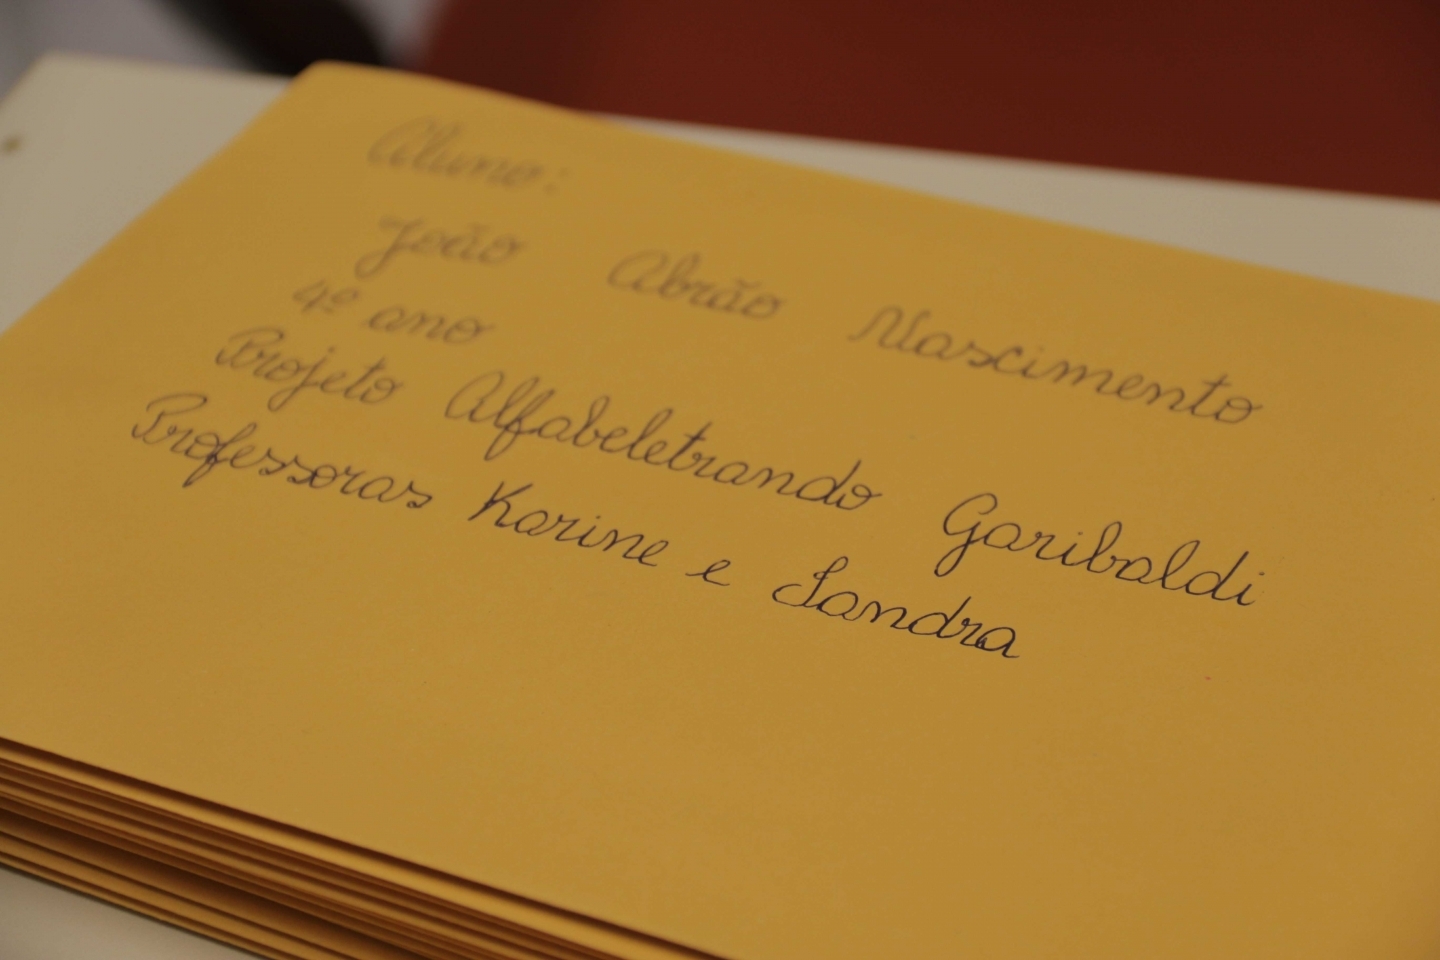 Aluno:
João Abrão Nascimento
4º ano
Projeto Alfabeletrando Garibaldi
Professoras Karine e Sandra